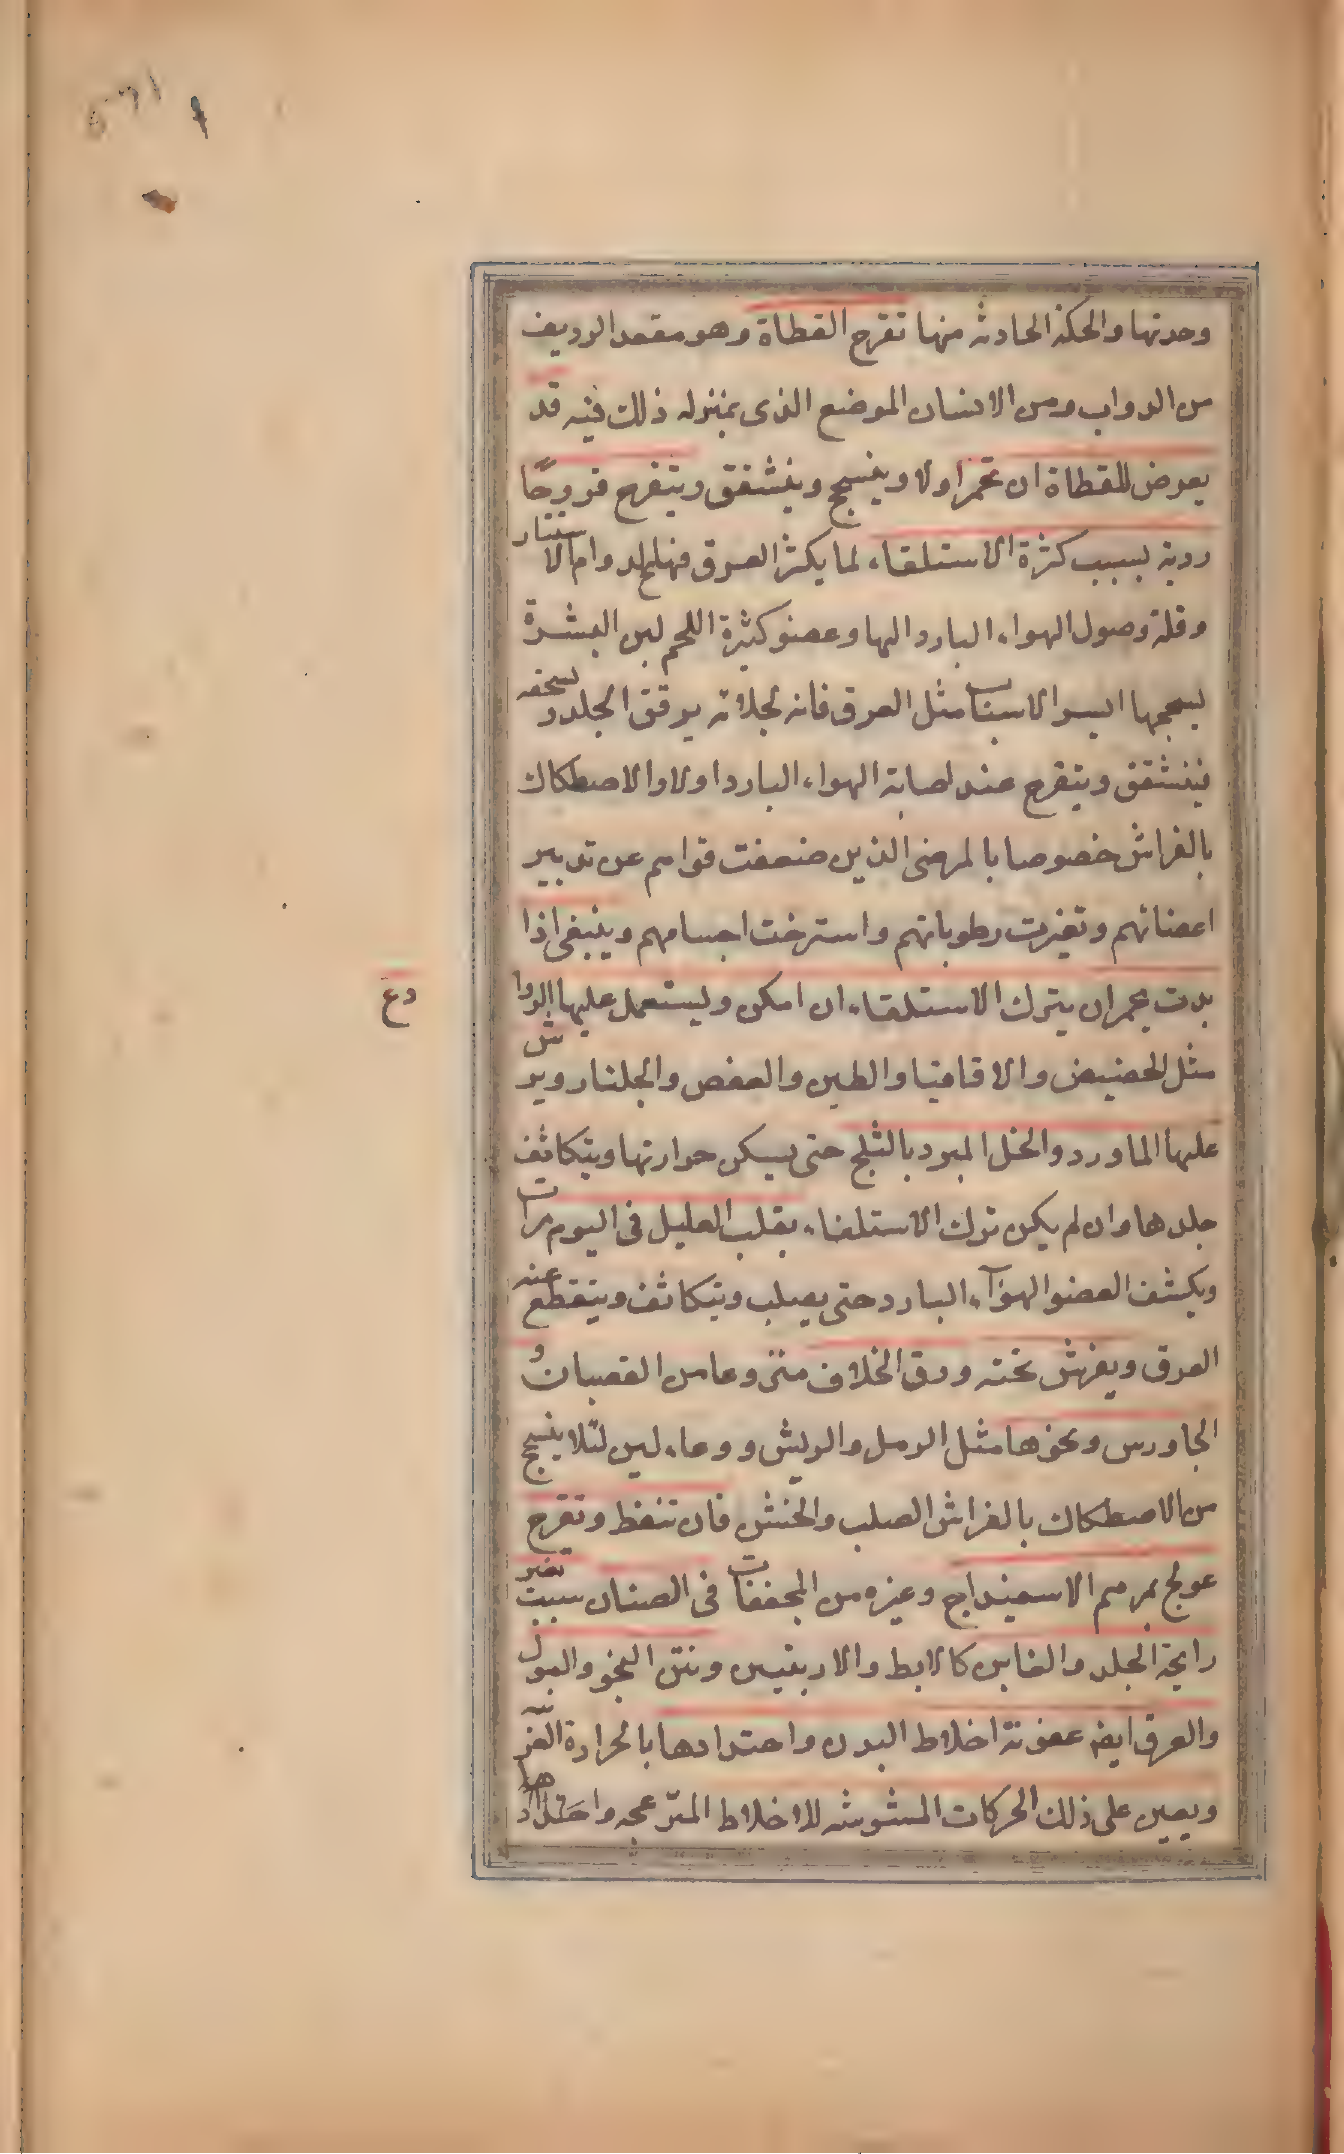 وحدتها والحكة الحادثه منها تقرح القطاة وهو مقعد الرديف
من الدواب ومن الانسان الموضع الذى بمنزله ذلك فيه قد
يعرض للقطاة ان تحمر اولا وينسحج وينشقق ويتقرح قروحًا
ردية بسبب كثرة الاستلقاء لما يكثر العرق فيها لدوام الاستتار
وقلة وصول الهواء البارد اليها وعضو كثيرة اللحم لين البشرة
ليسحجها ايسر الاسباب مثل العرق فانه لجلائه يرقق الجلد ويسخفه
فينشقق ويتقرح عند اصابة الهواء البارد اولا والاصطكاك
بالفراش خصوصا بالمرضى الذين ضعفت قواهم عن تدبير
اعضائهم وتغيرت رطوباتهم واسترخت اجسامهم وينبغى اذا
بدت بحمر ان يترك الاستلقاء ان امكن وليستعمل عليها الروادع
مثل الحضيض والاقاقيا والطين والعفص والجلنار ويرش
عليها الماورد والخل المبرد بالثلج حتى يسكن حرارتها ويتكاثف
جلدها وان لم يكن ترك الاستلقاء يقلب العليل فى اليوم مرات
ويكشف العضو الهوآء البارد حتى يصلب ويتكاثف وينقطع عنه
العرق ويفرش تحته ورق الخلاف منزوعا من القضبان و
الجاورس ونحوها مثل الرمل والريش ووعاء لين لئلا ينسحج
من الاصطكاك بالفراش الصلب والخشن فان تنفط وتقرح
عولج بمرهم الاسفيداج وغيره من المجففات فى الصنان سببت تغير
رايحة الجلد والمغابن كالابط والاربيتين ونتن النجو والبول
والعرق ايضا عفونة اخلاط البدن واحتدادها بالحرارة الغريبة
ويعين على ذلك الحركات المشوشه للاخلاط المثرعجه واحتدادها